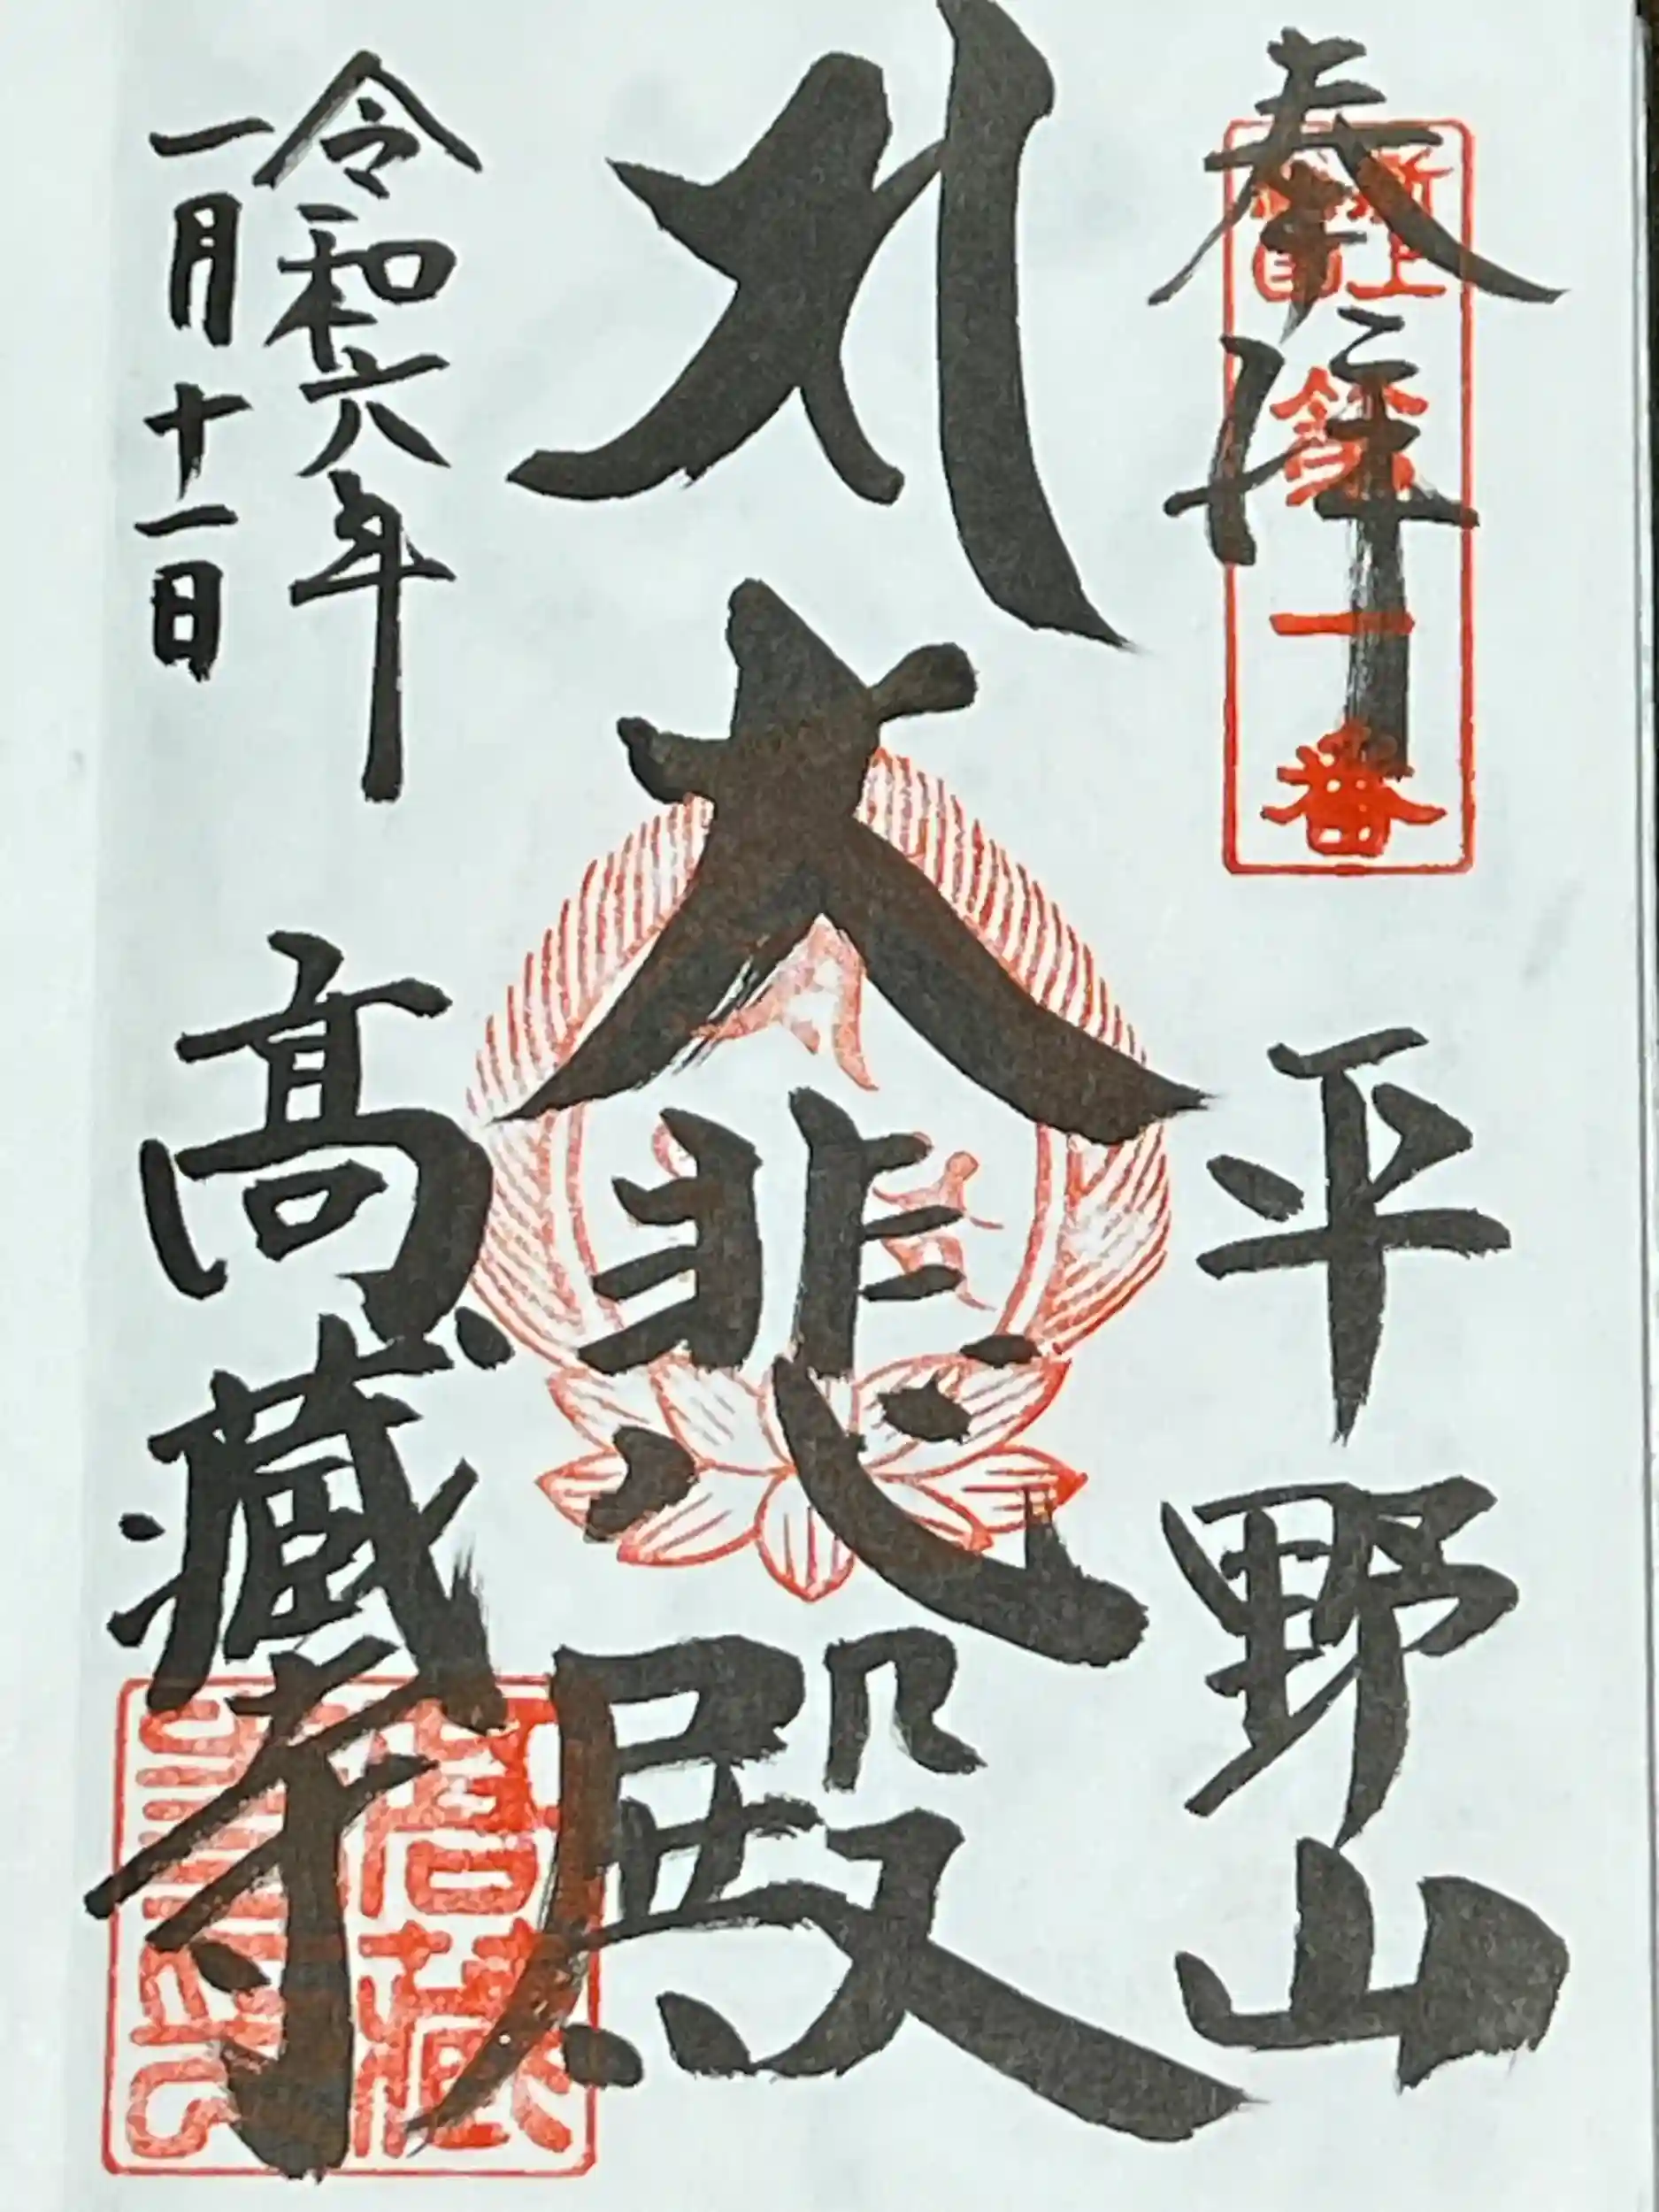 奉拝
一番
平野山
大悲殿
令和六年
一月十一日
高藏寺